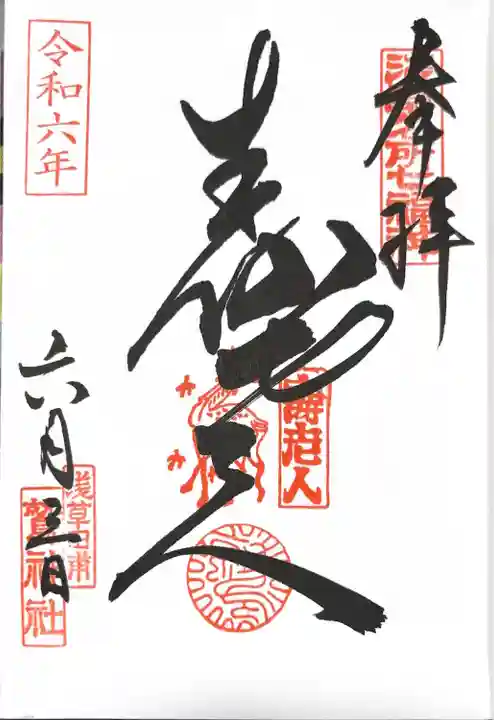 奉拝
浅草名所七福神
寿老人
壽老人
令和六年
六月三日
浅草田甫
鷲神社